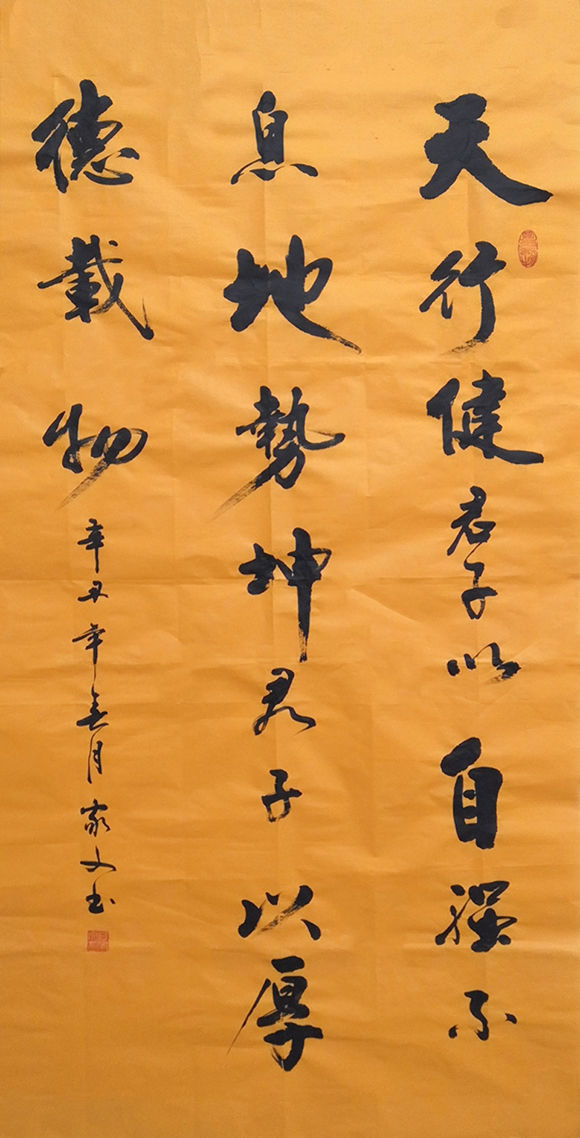 天行健君子以自强不
息地勢坤君子以厚
德載物
辛丑年春月家文书